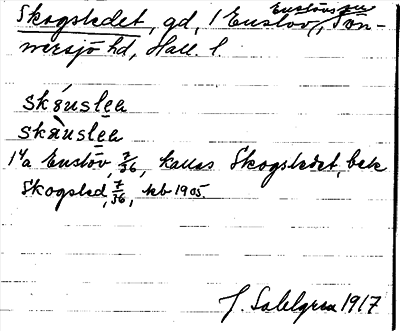 Skogsledet, gd, 1 Enslöv, Tön-
Enslövs sn
nersjö hd, Hall. l.
skǫ́uslèa
skàuslèa
1 a Enslöv, 7/36, kallas Skogsledet, bek
Skogsled, 7/36, kb 1905.
J. Sahlgren 1917